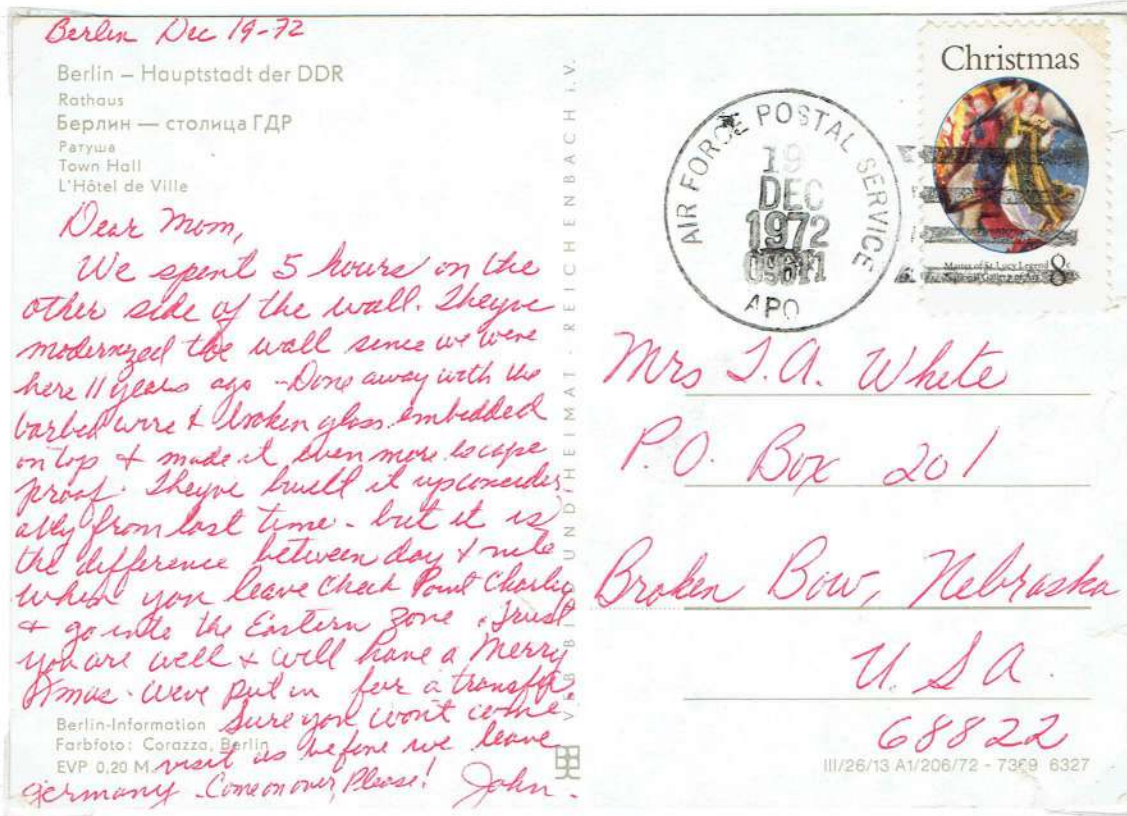 Berlin Dec 19-72
Berlin – Hauptstadt der DDR
Rathaus
Берлин — столица ГДР
Ратуша
Town Hall
L'Hôtel de Ville
Dear Mom,
We spent 5 hours on the
other side of the wall. Theyve
modernized the wall since we were
here 11 years ago - Done away with the
barbed wire & broken glass embedded
on top & made it even more escape
proof. Theyve built it up consider
ably from last time - but it is
the difference between day & nite
when you leave Check Point Charlie
& go into the Eastern Zone. Trust
you are well & will have a Merry
Xmas. Weve put in for a transfer.
Sure you wont come
visit us before we leave
Germany - Come on over, Please! John -
Berlin-Information
Farbfoto: Corazza, Berlin
EVP 0,20 M
VEB BILD UND HEIMAT · REICHENBACH i.V.
AIR FORCE POSTAL SERVICE
19
DEC
1972
09611
APO
Christmas
Master of St. Lucy Legend
National Gallery of Art
8c
Mrs T.A. White
P.O. Box 201
Broken Bow, Nebraska
U.S.A.
68822
III/26/13 A1/206/72 - 7369 6327